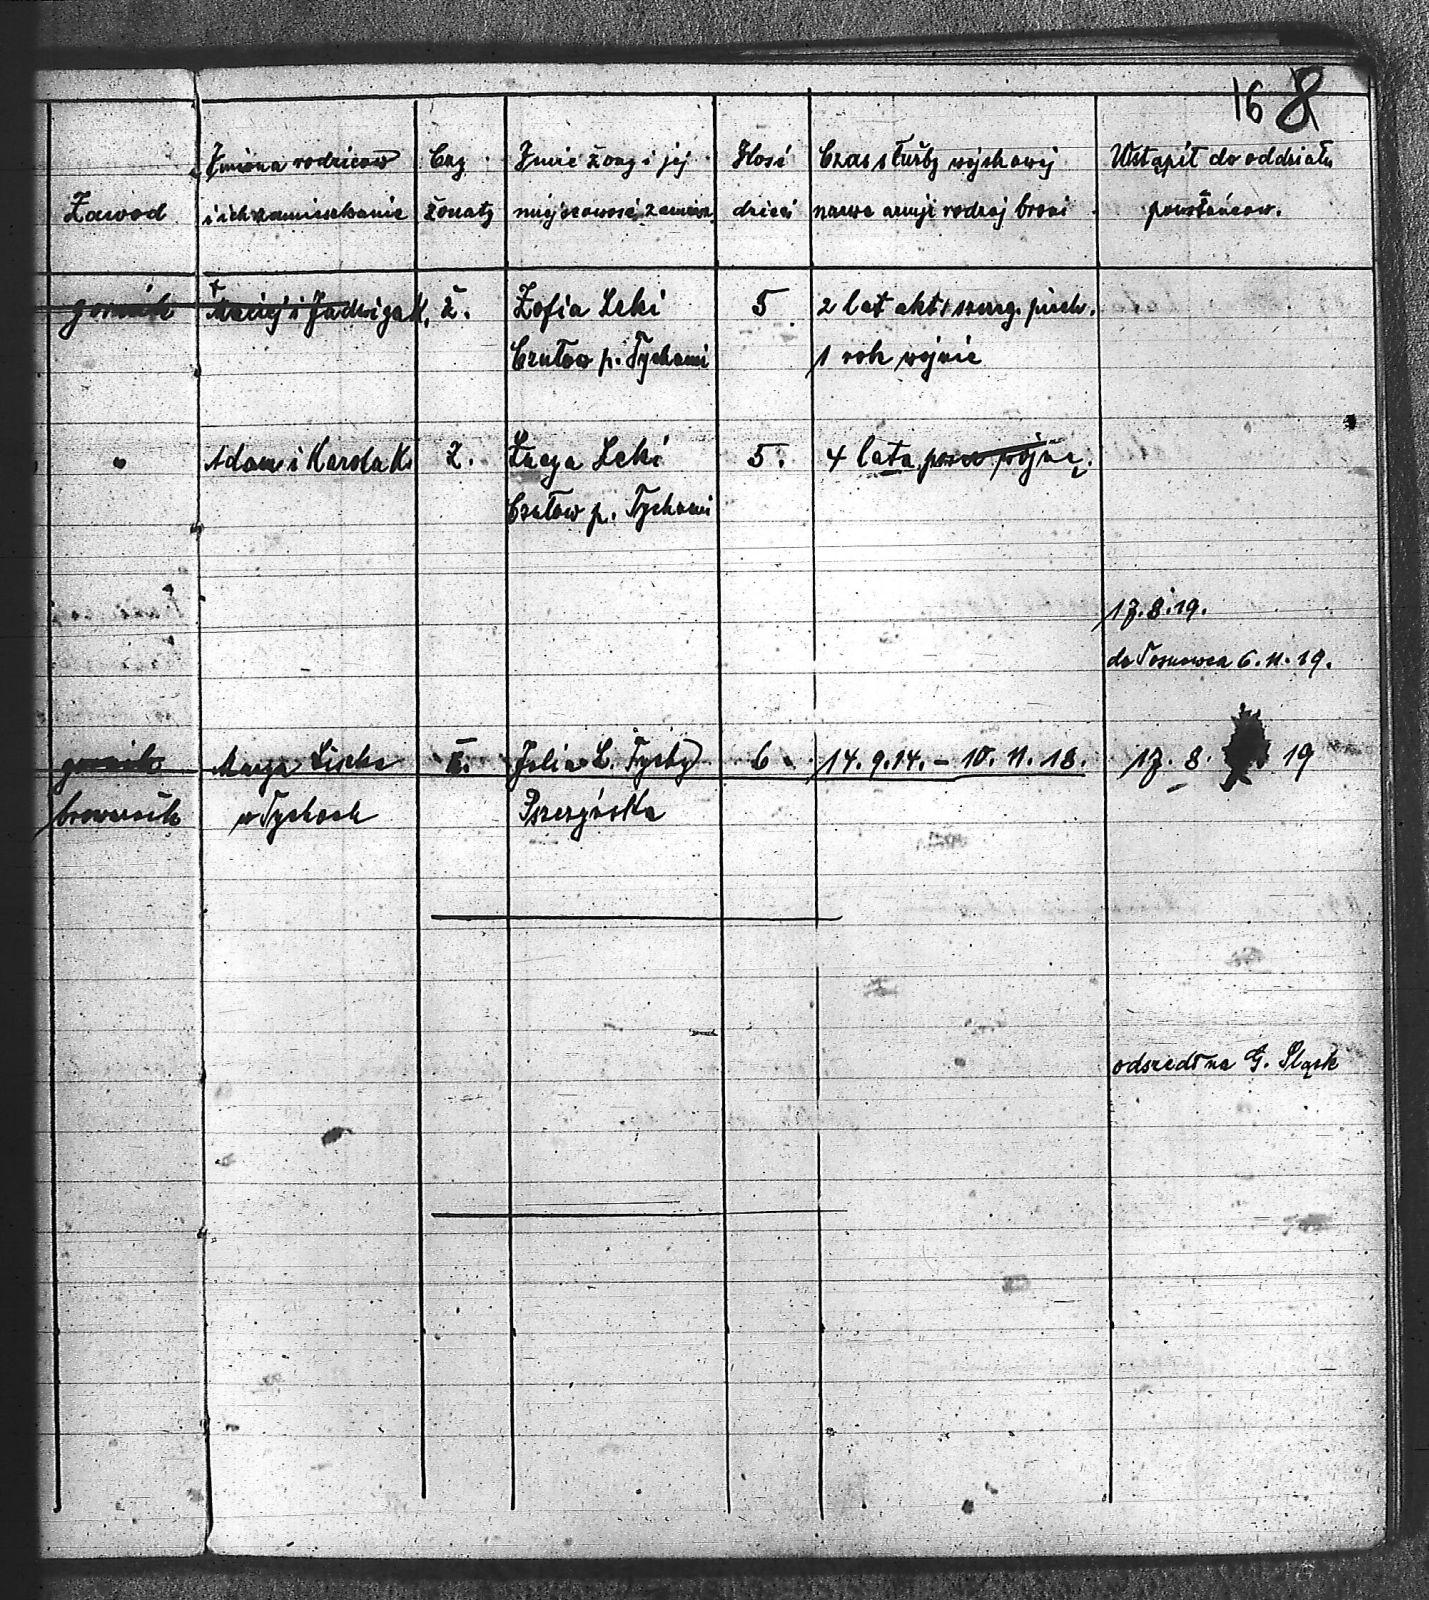 16 8
Zawód
Imiona rodziców
i ich zamieszkanie
Czy
żonaty
Imię żony i jej
miejscowość zamiesz.
Ilość
dzieci
Czas służby wojskowej
nazwa armji rodzaj broni
Wstąpił do oddziału
powstańców.
górnik Maciej i Jadwiga K. ż. Zofia Leki 5 2 lat akt. piech.
Czułow p. Tychami 1 rok wojnie
" Adam i Karola K. ż. Łucja Leki 5. 4 lata wojnę.
Czułow p. Tychami
17.8.19.
do Sosnowca 6.11.19.
górnik Marya Lischa ż. Julia L. Tychy 6 14.9.14. – 10.11.18. 17. 8. 19
browarnik w Tychach
odszedł na G. Śląsk